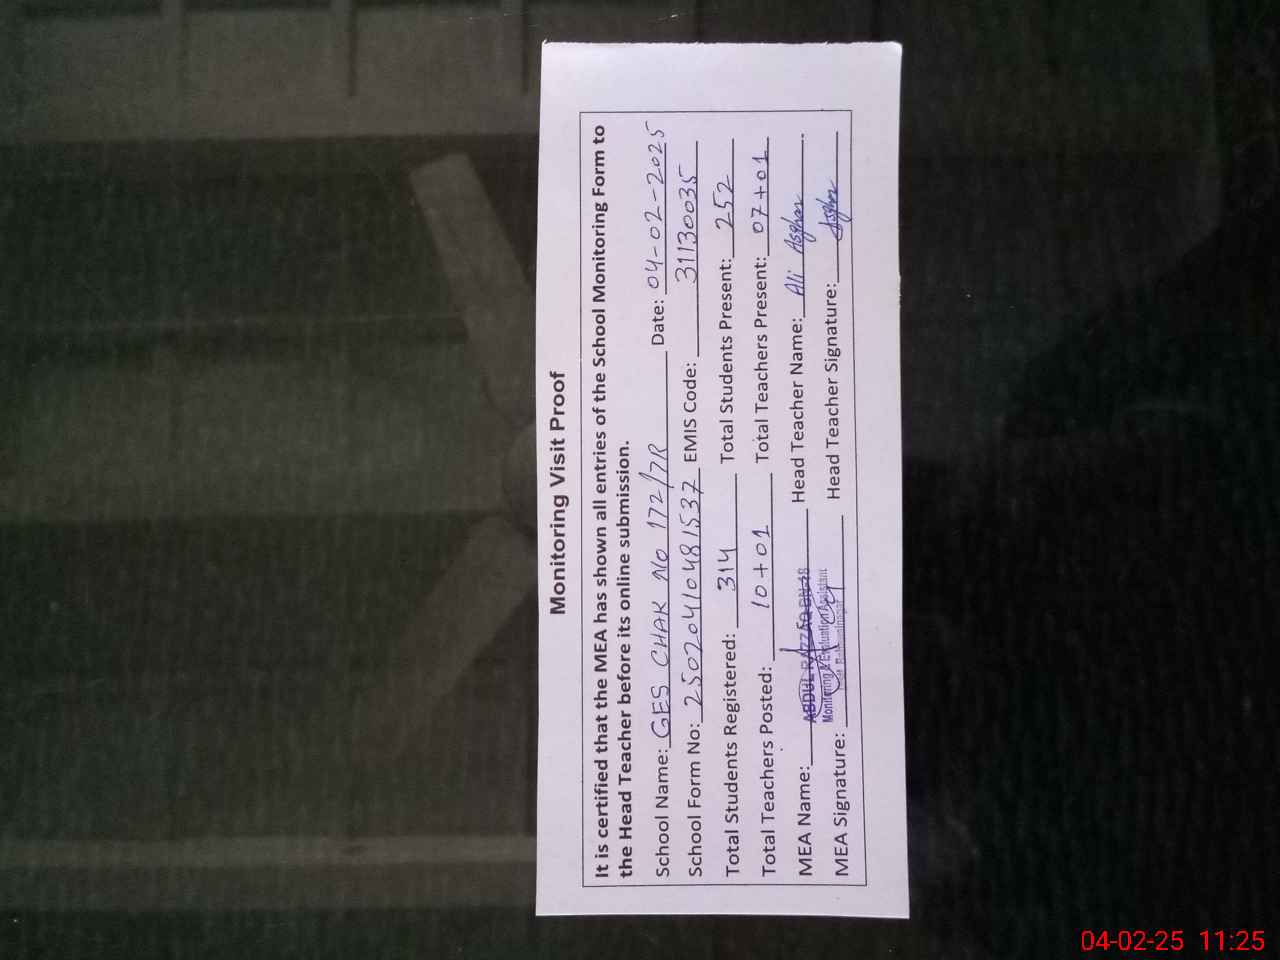 Monitoring Visit Proof
It is certified that the MEA has shown all entries of the School Monitoring Form to
the Head Teacher before its online submission.
School Name: GES CHAK No 172/7R Date: 04-02-2025
School Form No: 25020410481537 EMIS Code: 31130035
Total Students Registered: 314 Total Students Present: 252
Total Teachers Posted: 10+01 Total Teachers Present: 07+01
MEA Name: ABDUL RAZZAQ Head Teacher Name: Ali Asghar
Monitoring & Evaluation Assistant
MEA Signature: Head Teacher Signature: Asghar
04-02-25 11:25